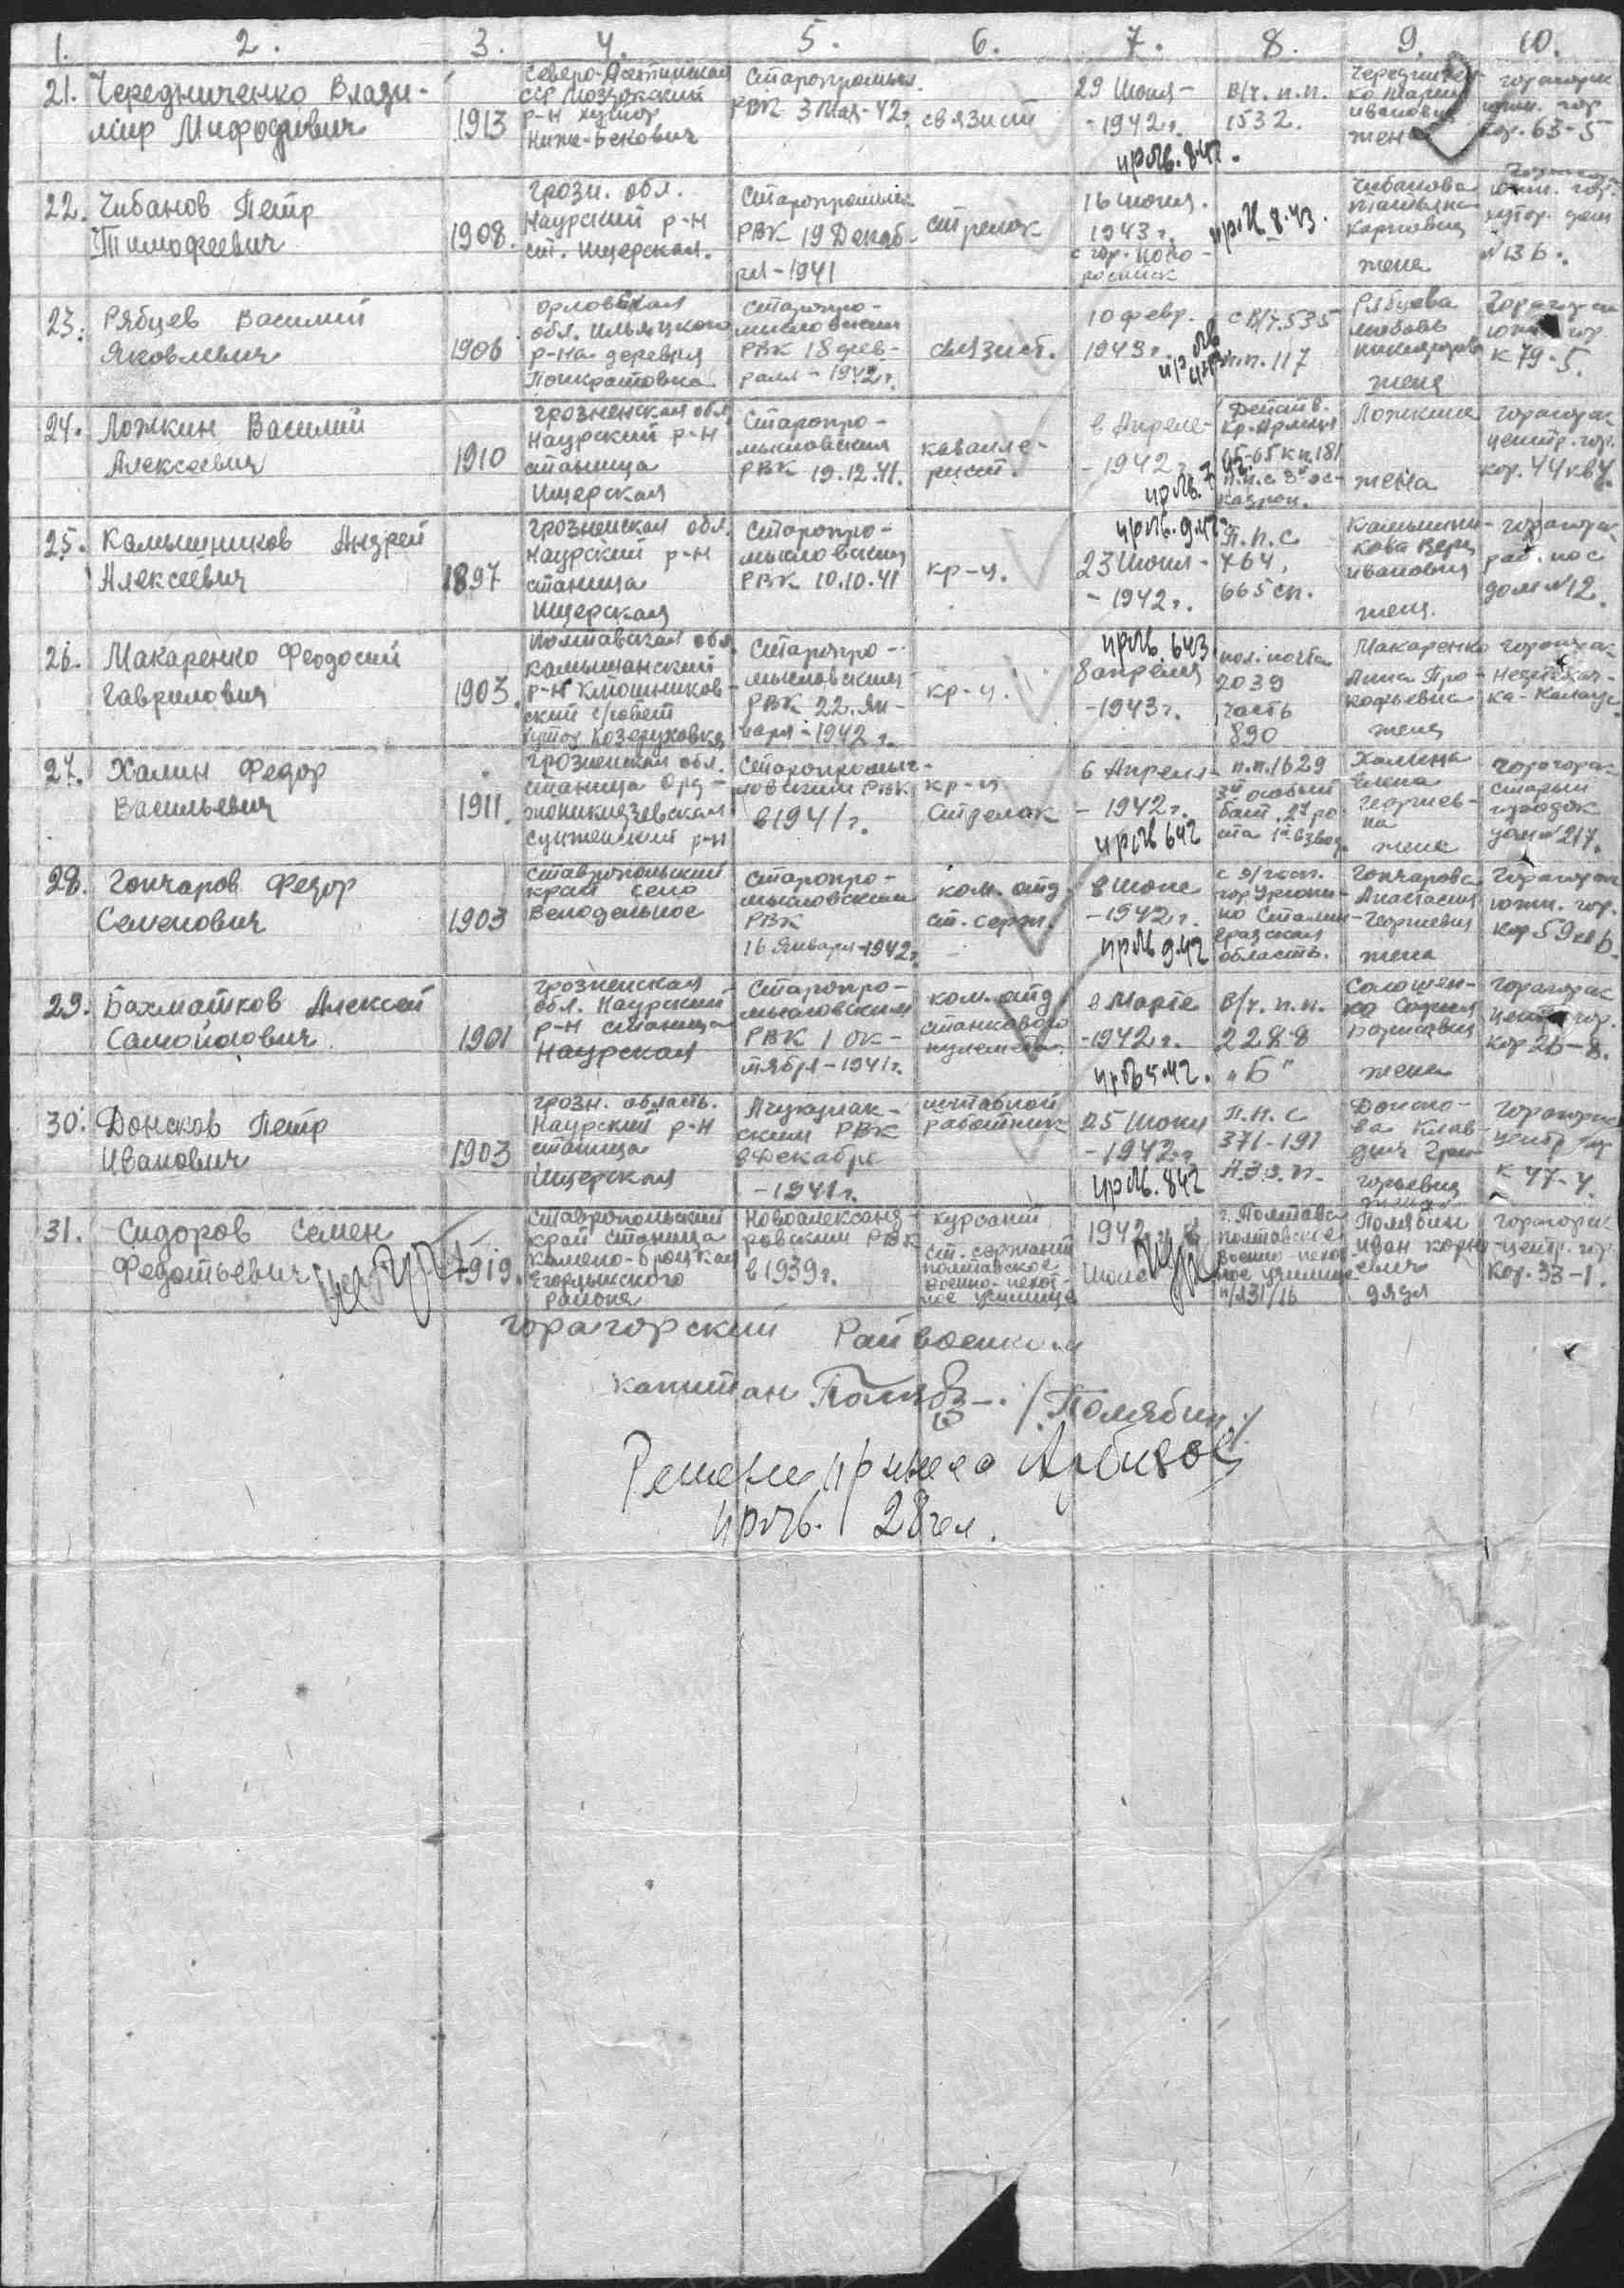 1. 2. 3. 4. 5. 6. 7. 8. 9. 10.
21. Чередниченко Влади-
мир Мифодиевич
1913
Северо-Осетинская
ССР Моздокский
р-н хутор
Ниже-Бекович
Старопромысл.
РВК 3 мая-42г.
связист
29 июня-
-1942г.
пр.б/в. 8.42.
В/ч. п.п.
1532.
Чередничен-
ко Мария
Ивановна
жена
горагорск
южн. гор.
кор. 63-5
22. Чибанов Петр
Тимофеевич
1908.
Грозн. обл.
Наурский р-н
ст. Ищерская.
Старопромысл.
РВК 19 Декаб-
ря-1941
стрелок
16 июня.
1943г.
с гор. Ново-
росийск
8.43.
Чибанова
Татьяна
Карповна
жена
Горагорск
южн. гор.
хутор. дом
№136.
23. Рябцев Василий
Яковлевич
1906
Орловская
обл.
р-на деревня
Панкратовка
Старопро-
мысловским
РВК 18 фев-
раля-1942г.
связист.
10 февр.
1943г.
с В/ч. 535
п.п. 117
Рябцева
Любовь
жена
Горагорск
южн. гор.
к 79-5.
24. Ложкин Василий
Алексеевич
1910
Грозненская обл.
Наурский р-н
станица
Ищерская
Старопро-
мысловским
РВК 19.12.41.
кавале-
рист.
в Апреле-
-1942г.
Действ.
Кр-Армия
Ложкина
жена
горагорск
центр. гор.
кор. 44 кв 4.
25. Камышников Андрей
Алексеевич
1897
Грозненская обл.
Наурский р-н
станица
Ищерская
Старопро-
мысловским
РВК 10.10.41
кр-ц.
пр.б/в. 9.42г.
23 июня-
-1942г.
П.п.с
764,
665 сп.
Камышни-
кова Вера
Ивановна
жена.
горагорск
раб. пос
дом №12.
26. Макаренко Феодосий
Гаврилович
1903.
Полтавская обл.
Камышанский
р-н Клюшников-
ский с/совет
хутор Козеруховка
Старопро-
мысловским
РВК 22. Ян-
варя-1942г.
кр-ц.
пр.б/в. 6.43
8 апреля
-1943г.
пол. почта
2039
часть
890
Макаренко
Анна Про-
кофьевна
жена
горагорск
27. Халин Федор
Васильевич
1911.
Грозненская обл.
станица Орд-
жоникидзевская
Сунженский р-н
Старопромыс-
ловским РВК
в 1941г.
кр-ц
стрелок
6 Апреля-
-1942г.
пр.б/в 6.42
п.п. 1629
3й особый
бат. 2я ро-
та 1й взвод.
Халина
Елена
Георгиев-
на
жена
горагорск
старый
городок
дом №217.
28. Гончаров Федор
Семенович
1903
Ставропольский
край село
Винодельное
Старопро-
мысловским
РВК
16 Января-1942г.
ком. отд.
ст. серж.
в июне
-1942г.
пр.б/в 9.42
с э/госп.
гор Урюпи-
но Сталин-
градская
область.
Гончарова
Анастасия
Георгиевна
жена
Горагорск
южн. гор.
кор 59 кв 6.
29. Бахмашков Алексей
Самойлович
1901
Грозненская
обл. Наурский
р-н станица
Наурская
Старопро-
мысловским
РВК 1 ок-
тября-1941г.
ком. отд.
станкового
пулемета.
в Марте
-1942г.
пр.б/в 5.42.
В/ч. п.п.
2288
„Б"
Солошен-
ко София
Борисовна
жена
горагорск
центр. гор.
кор 26-8.
30. Донсков Петр
Иванович
1903
Грозн. область.
Наурский р-н
станица
Ищерская
Ачхулак-
ским РВК
8 Декабря
-1941г.
штабной
работник
25 июня
-1942г
пр.б/в. 8.42
П.п.с
371-191
А.З.О.П.
Донско-
ва Клав-
дия Гри-
горьевна
жена
Горагорск
центр. гор
к 47-4.
31. Сидоров Семен
Федотьевич
1919.
Ставропольский
край станица
Камено-Бродская
Егорлыкского
района
Новоалександ-
ровским РВК
в 1939г.
курсант
ст. сержант
полтавское
военно-пехот-
ное училище
1942г. в
Июле
г. Полтава
полтавское
военно-пехот-
ное училище
п/я 31/16
Полябин
Иван Корне-
евич
дядя
горагорск
центр. гор.
кор. 33-1.
Горагорский Райвоенком
капитан /Полябин/
Решение принято
пр.б/в. 28 чел.